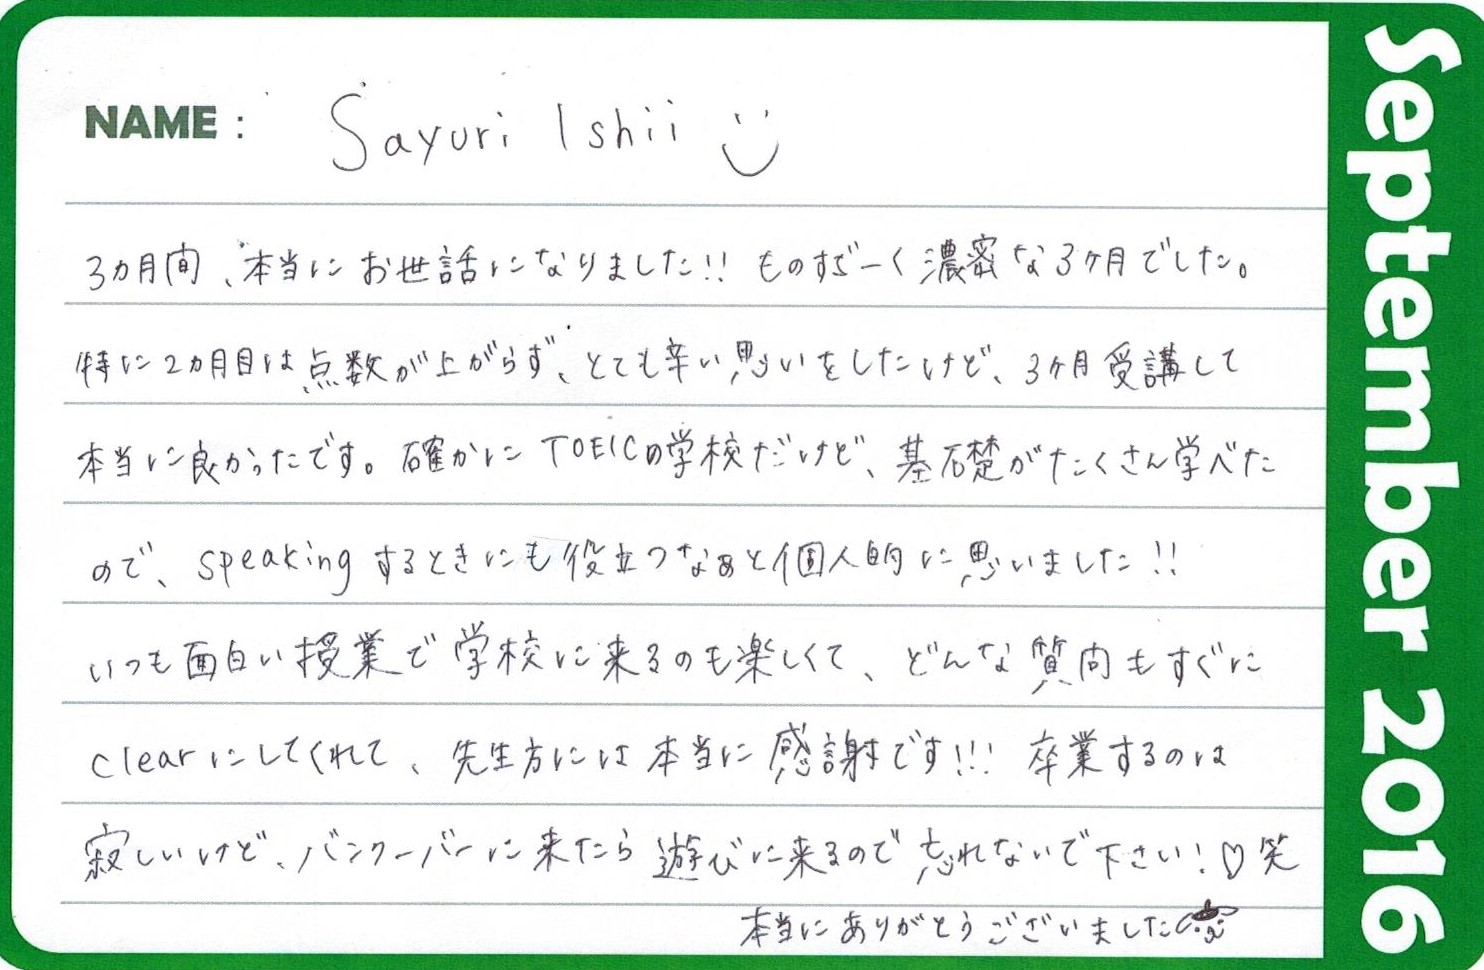 NAME : Sayuri Ishii
3カ月間、本当にお世話になりました!! ものすごーく濃密な3ヶ月でした。
特に2カ月目は点数が上がらず、とても辛い思いをしたけど、3ヶ月受講して
本当に良かったです。確かにTOEICの学校だけど、基礎がたくさん学べた
ので、speakingするときにも役立つなぁと個人的に思いました!!
いつも面白い授業で学校に来るのも楽しくて、どんな質問もすぐに
clearにしてくれて、先生方には本当に感謝です!!! 卒業するのは
寂しいけど、バンクーバーに来たら遊びに来るので忘れないで下さい!♡笑
本当にありがとうございました
September 2016